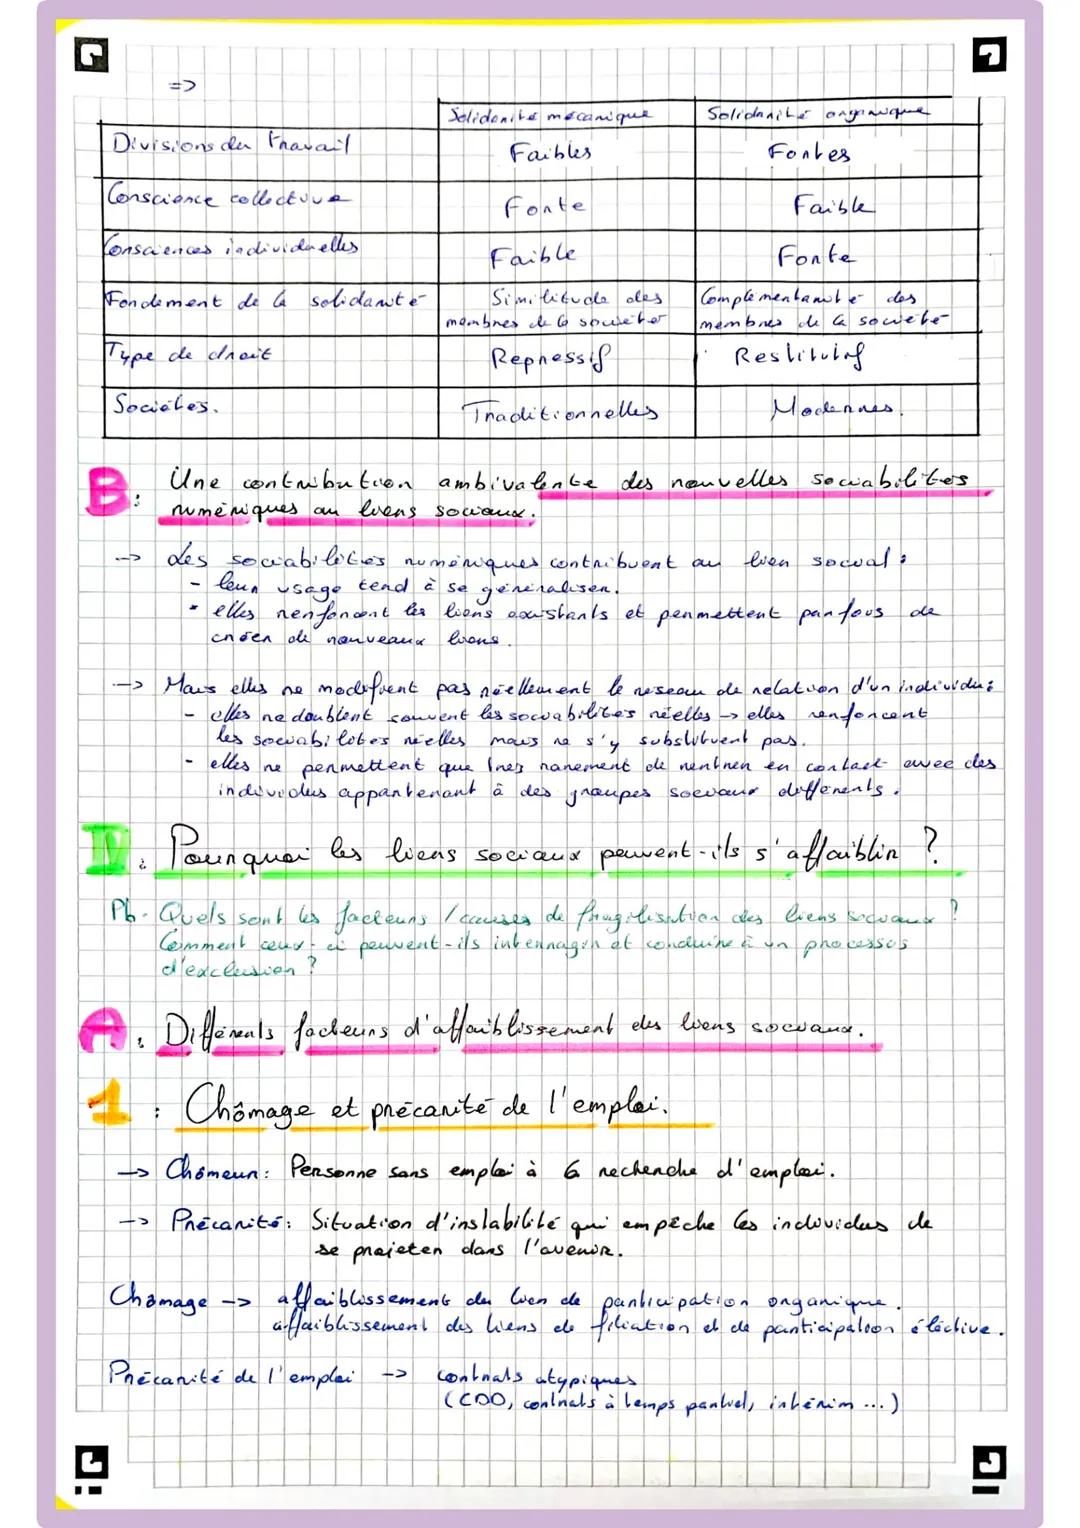 =>
Solidarité mécanique Solidarité organique
Divisions du travail Faibles Fortes
Conscience collective Forte Faible
Consciences individuelles Faible Forte
Fondement de la solidarité Similitude des membres de la société Complémentarité des membres de la société
Type de droit Répressif Restitutif
Sociétés. Traditionnelles Modernes.
B: Une contribution ambivalente des nouvelles sociabilités
numériques au liens sociaux.
-> Les sociabilités numériques contribuent au lien social :
- leur usage tend à se généraliser.
- elles renforcent les liens existants et permettent parfois de
créer de nouveaux liens.
-> Mais elles ne modifient pas réellement le réseau de relation d'un individu :
- elles redoublent souvent les sociabilités réelles -> elles renforcent
les sociabilités réelles mais ne s'y substituent pas.
- elles ne permettent que très rarement de rentrer en contact avec des
individus appartenant à des groupes sociaux différents.
IV: Pourquoi les liens sociaux peuvent-ils s'affaiblir ?
Pb- Quels sont les facteurs / causes de fragilisation des liens sociaux ?
Comment ceux-ci peuvent-ils interragir et conduire à un processus
d'exclusion ?
A: Différents facteurs d'affaiblissement des liens sociaux.
1: Chômage et précarité de l'emploi.
-> Chômeur: Personne sans emploi à la recherche d'emploi.
-> Précarité: Situation d'instabilité qui empêche les individus de
se projeter dans l'avenir.
Chômage -> affaiblissement du lien de participation organique.
affaiblissement des liens de filiation et de participation élective.
Précarité de l'emploi -> contrats atypiques
(CDD, contrats à temps partiel, intérim ...)